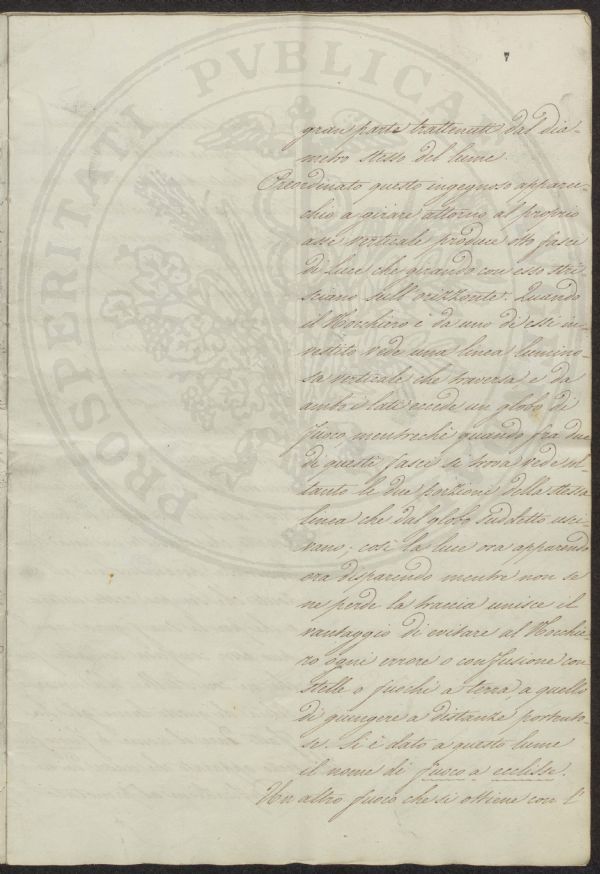 7
gran parte trattenuti dal dia-
metro stesso del lume.
Preordinato questo ingegnoso apparec-
chio a girare attorno al proprio
asse verticale produce otto fasci
di luce che girando con esso stri-
sciano sull'orizzonte. Quando
il Nocchiero è da uno di essi in-
vestito vede una linea lumino-
sa verticale che traversa e da
ambo i lati eccede un globo di
fuoco mentrechè quando fra due
di questi fasci si trova vede sol-
tanto le due porzioni della stessa
linea che dal globo suddetto usci-
vano; così la luce ora apparendo
ora disparendo mentre non se
ne perde la traccia unisce il
vantaggio di evitare al Nocchie-
ro ogni errore o confusione con
stelle o fuochi a terra, a quello
di giungere a distanze portento-
se. Si è dato a questo lume
il nome di fuoco a ecclisse.
Un altro fuoco che si ottiene con l'
PROSPERITATI PVBLICAE